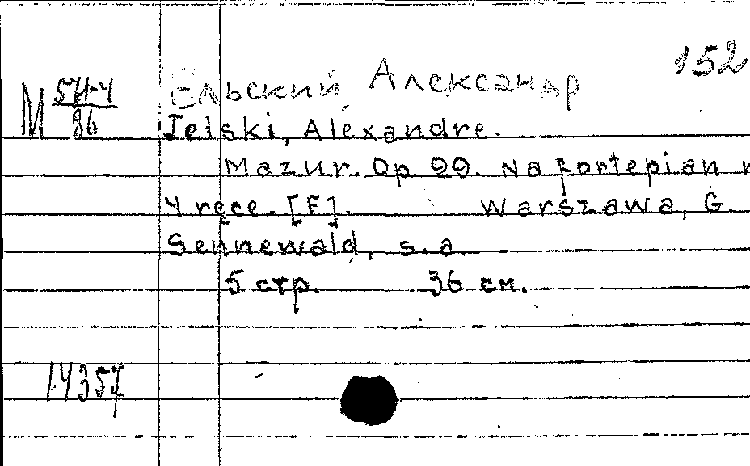 152
Ельский, Александр
М 5Н-4
86
Jelski, Alexandre.
Mazur. Op 99. Na fortepian n
4 ręce. [F]. Warszawa, G
Sennewald, s. a
5 стр. 36 см.
14357